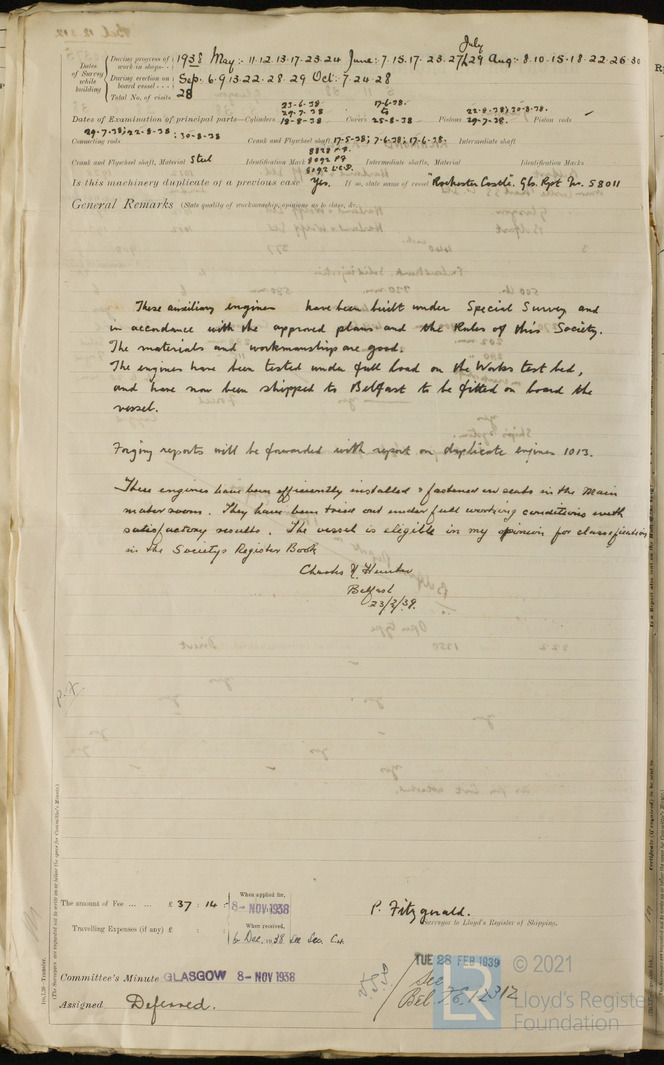 July
During progress of work in shops - - 1938 May:- 11.12.13.17.23.24 June: 7.15.17.23.27 29 Aug:- 8.10.15.18.22.26.30
Dates of Survey while building
During erection on board vessel - - - Sep. 6.9.13.22.28.29 Oct: 7.24.28
Total No. of visits 28
23-6-38 17-6-38. 22-8-38; 30-8-38.
29-7-38
Dates of Examination of principal parts—Cylinders 18-8-38 Covers 25-8-38 Pistons 29-7-38. Piston rods
29-7-38; 22-8-38; 30-8-38
Connecting rods Crank and Flywheel shaft 17-5-38; 7-6-38; 17-6-38. Intermediate shaft
8828
Crank and Flywheel shaft, Material Steel Identification Mark 8092 Intermediate shafts, Material Identification Marks
8092
Is this machinery duplicate of a previous case Yes. If so, state name of vessel "Rochester Castle". Gls. Rpt No. 58011
General Remarks (State quality of workmanship, opinions as to class, &c.
These auxiliary engines have been built under Special Survey and
in accordance with the approved plans and the Rules of this Society.
The materials and workmanship are good.
The engines have been tested under full load on the Works test bed,
and have now been shipped to Belfast to be fitted on board the
vessel.
Forging reports will be forwarded with report on duplicate engines 1013.
These engines have been efficiently installed & fastened on seats in the main
motor room. They have been tried out under full working conditions with
satisfactory results. The vessel is eligible in my opinion for classification
in the Society's Register Book
Charles Hunter
Belfast
23/2/39.
The amount of Fee ... ... £ 37 : 14 :- When applied for, 8- NOV 1938
Travelling Expenses (if any) £ : : When received, 6 Dec. 1938
P. Fitzgerald.
Surveyor to Lloyd's Register of Shipping.
Committee's Minute GLASGOW 8- NOV 1938
TUE 28 FEB 1939
Assigned Deferred.
See
Bel. 12312
© 2021
Lloyd's Register
Foundation